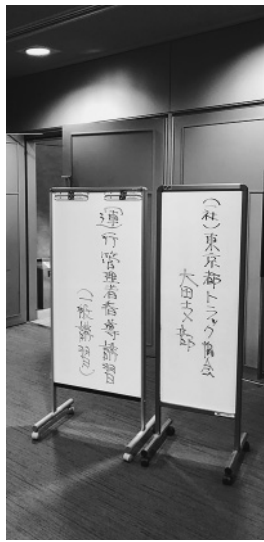 (社)東京都トラック協会
大田支部
運行管理者指導講習
(一般講習)